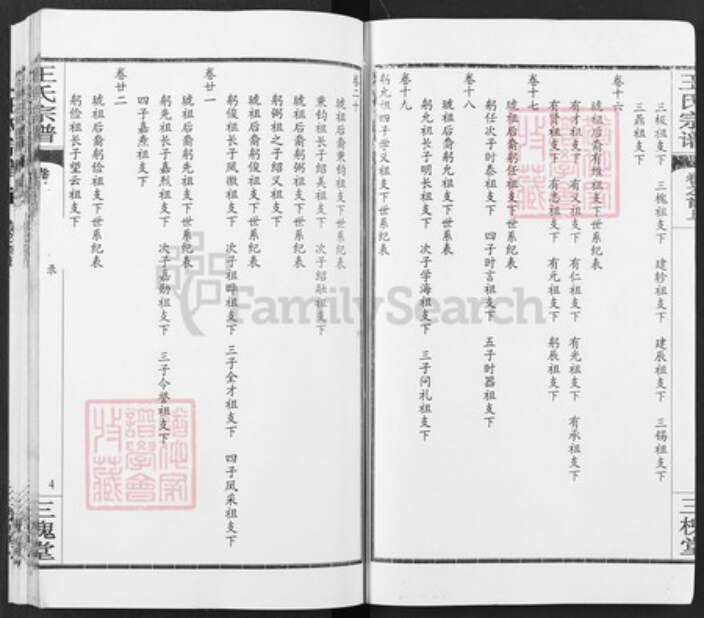 王氏宗谱
三槐堂
三板祖支下 三槐祖支下 建轸祖支下 建辰祖支下 三锡祖支下
三燕祖支下
卷十六
琥祖后裔有维祖支下世系纪表
有才祖支下 有义祖支下 有仁祖支下 有光祖支下 有承祖支下
有贤祖支下 有志祖支下 有元祖支下 躬辰祖支下
卷十七
琥祖后裔躬任祖支下世系纪表
躬任次子时泰祖支下 四子时言祖支下 五子时器祖支下
卷十八
琥祖后裔躬允祖支下世系纪表
躬允祖长子明长祖支下 次子学海祖支下 三子问礼祖支下
卷十九
躬允祖四子学义祖支下世系纪表
卷二十
琥祖后裔秉钧祖支下世系纪表
秉钧祖长子绍美祖支下 次子绍融祖支下
琥祖后裔躬弼祖支下世系纪表
躬弼祖之子绍义祖支下
琥祖后裔躬俊祖支下世系纪表
躬俊祖长子凤徵祖支下 次子祖晔祖支下 三子金才祖支下 四子凤采祖支下
卷廿一
琥祖后裔躬先祖支下世系纪表
躬先祖长子嘉烈祖支下 次子嘉勋祖支下 三子令誉祖支下
四子嘉焘祖支下
卷廿二
琥祖后裔躬俭祖支下世系纪表
躬俭祖长子望云祖支下
王氏宗谱
卷
录
4
三槐堂
FamilySearch